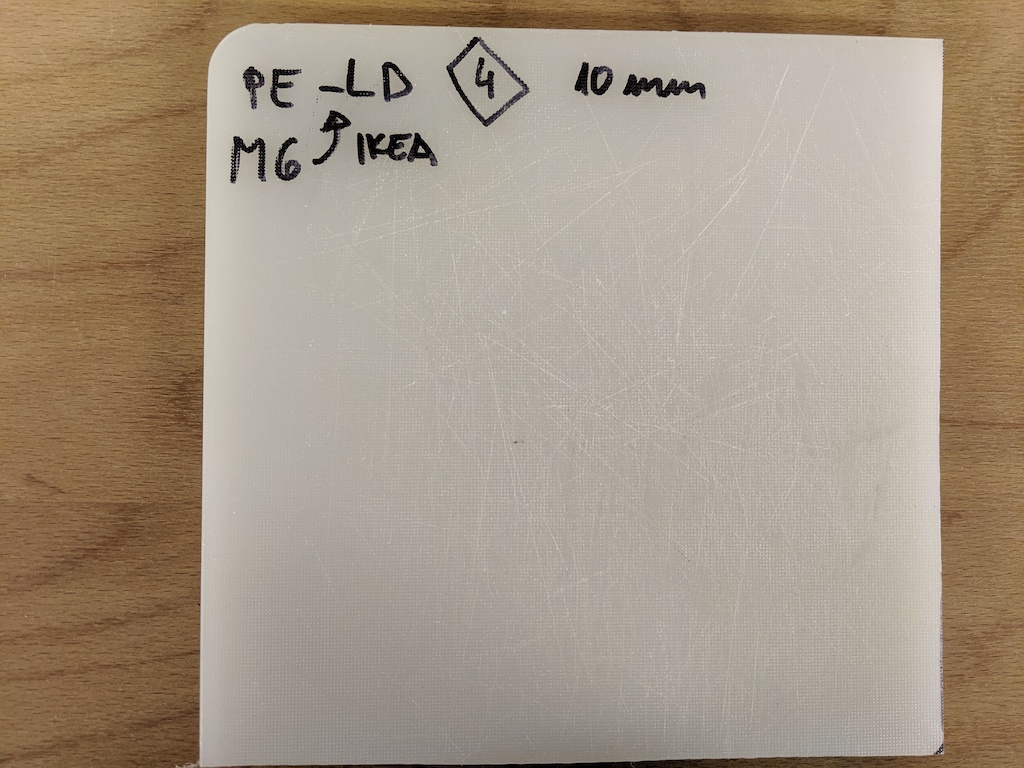 PE-LD 4 10 mm
M6 IKEA